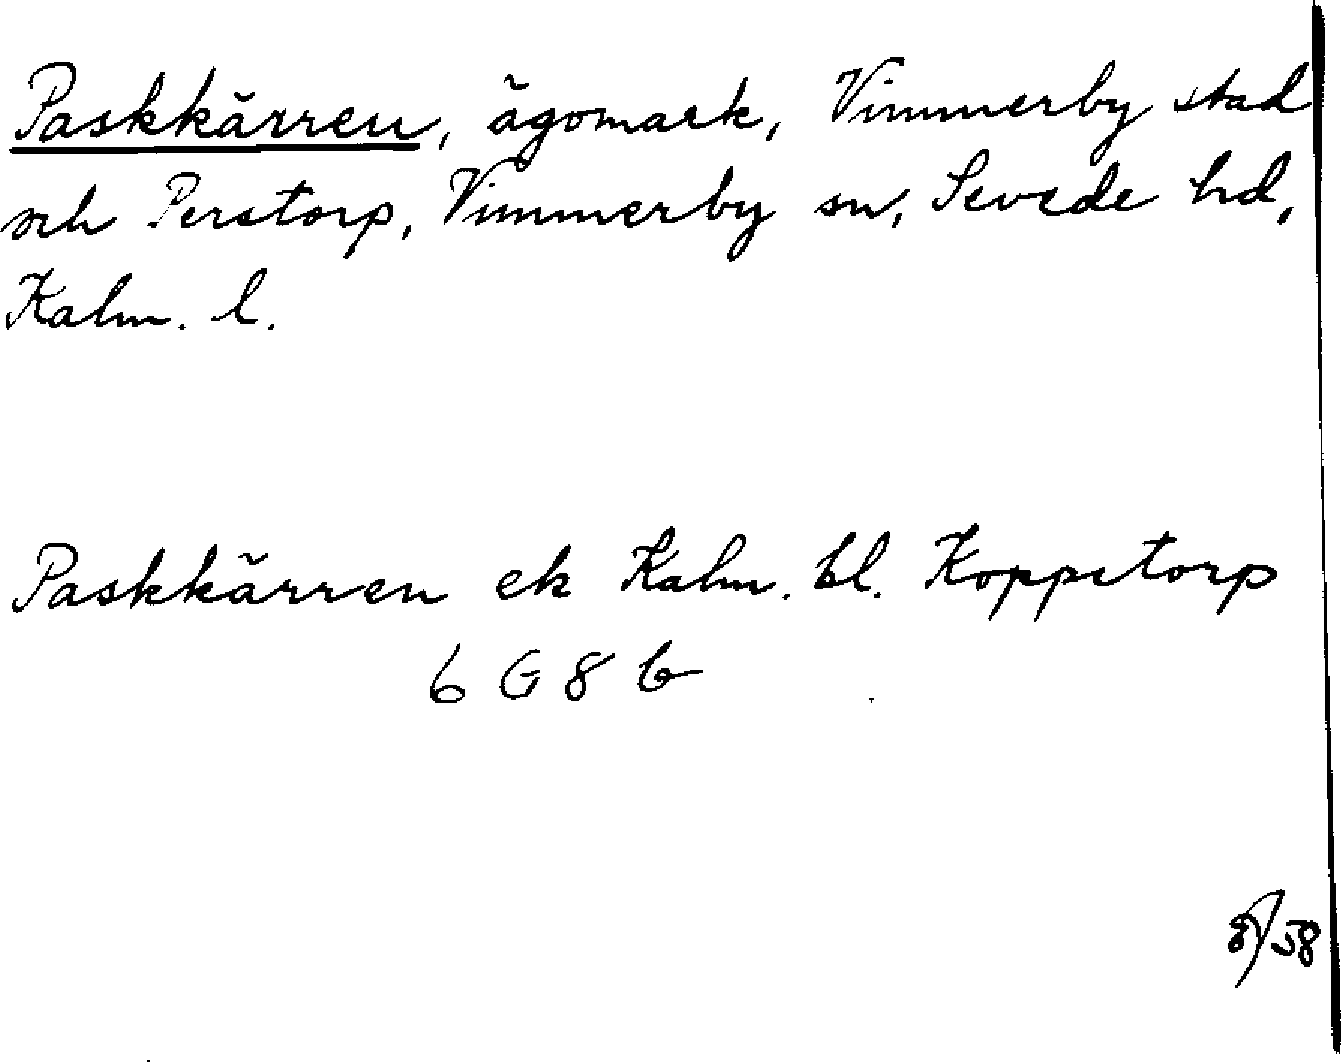 Paskkärren, ägomark, Vimmerby stad
och Perstorp, Vimmerby sn, Sevede hd,
Kalm. l.
Paskkärren ek Kalm. bl. Koppetorp
6 G 8 b
58